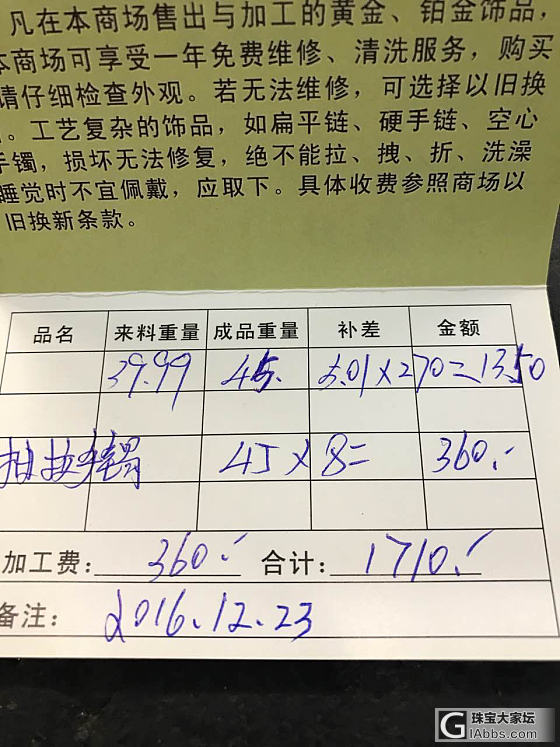 凡在本商场售出与加工的黄金、铂金饰品，
本商场可享受一年免费维修、清洗服务，购买
请仔细检查外观。若无法维修，可选择以旧换
。工艺复杂的饰品，如扁平链、硬手链、空心
手镯，损坏无法修复，绝不能拉、拽、折、洗澡
睡觉时不宜佩戴，应取下。具体收费参照商场以
旧换新条款。
品名 来料重量 成品重量 补差 金额
39.99 45. 5.01×270=1350
抽拉手镯 45×8= 360.-
加工费: 360.- 合计: 1710.-
备注: 2016.12.23
珠宝大家坛
IAbbs.com